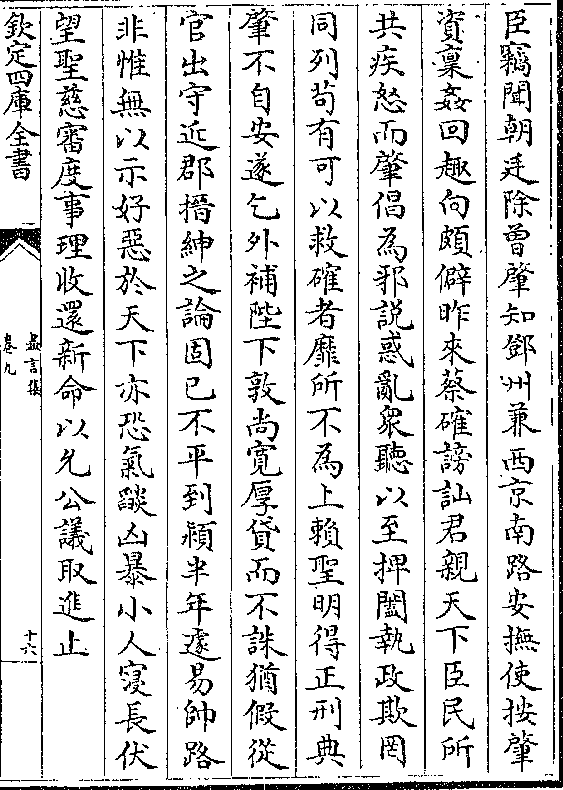 臣竊聞朝廷除曾肇知鄧州兼西京南路安撫使按肇
資稟姦回趣向頗僻昨來蔡確謗訕君親天下臣民所
共疾怒而肇倡為邪說惑亂衆聽以至捭闔執政欺罔
同列苟有可以救確者靡所不為上賴聖明得正刑典
肇不自安遂乞外補陛下敦尚寛厚貸而不誅猶假從
官出守近郡搢紳之論固已不平到潁半年遽易帥路
非惟無以示好惡於天下亦恐氣燄凶暴小人寖長伏
望聖慈審度事理收還新命以允公議取進止
欽定四庫全書
盡言集
卷九
十六